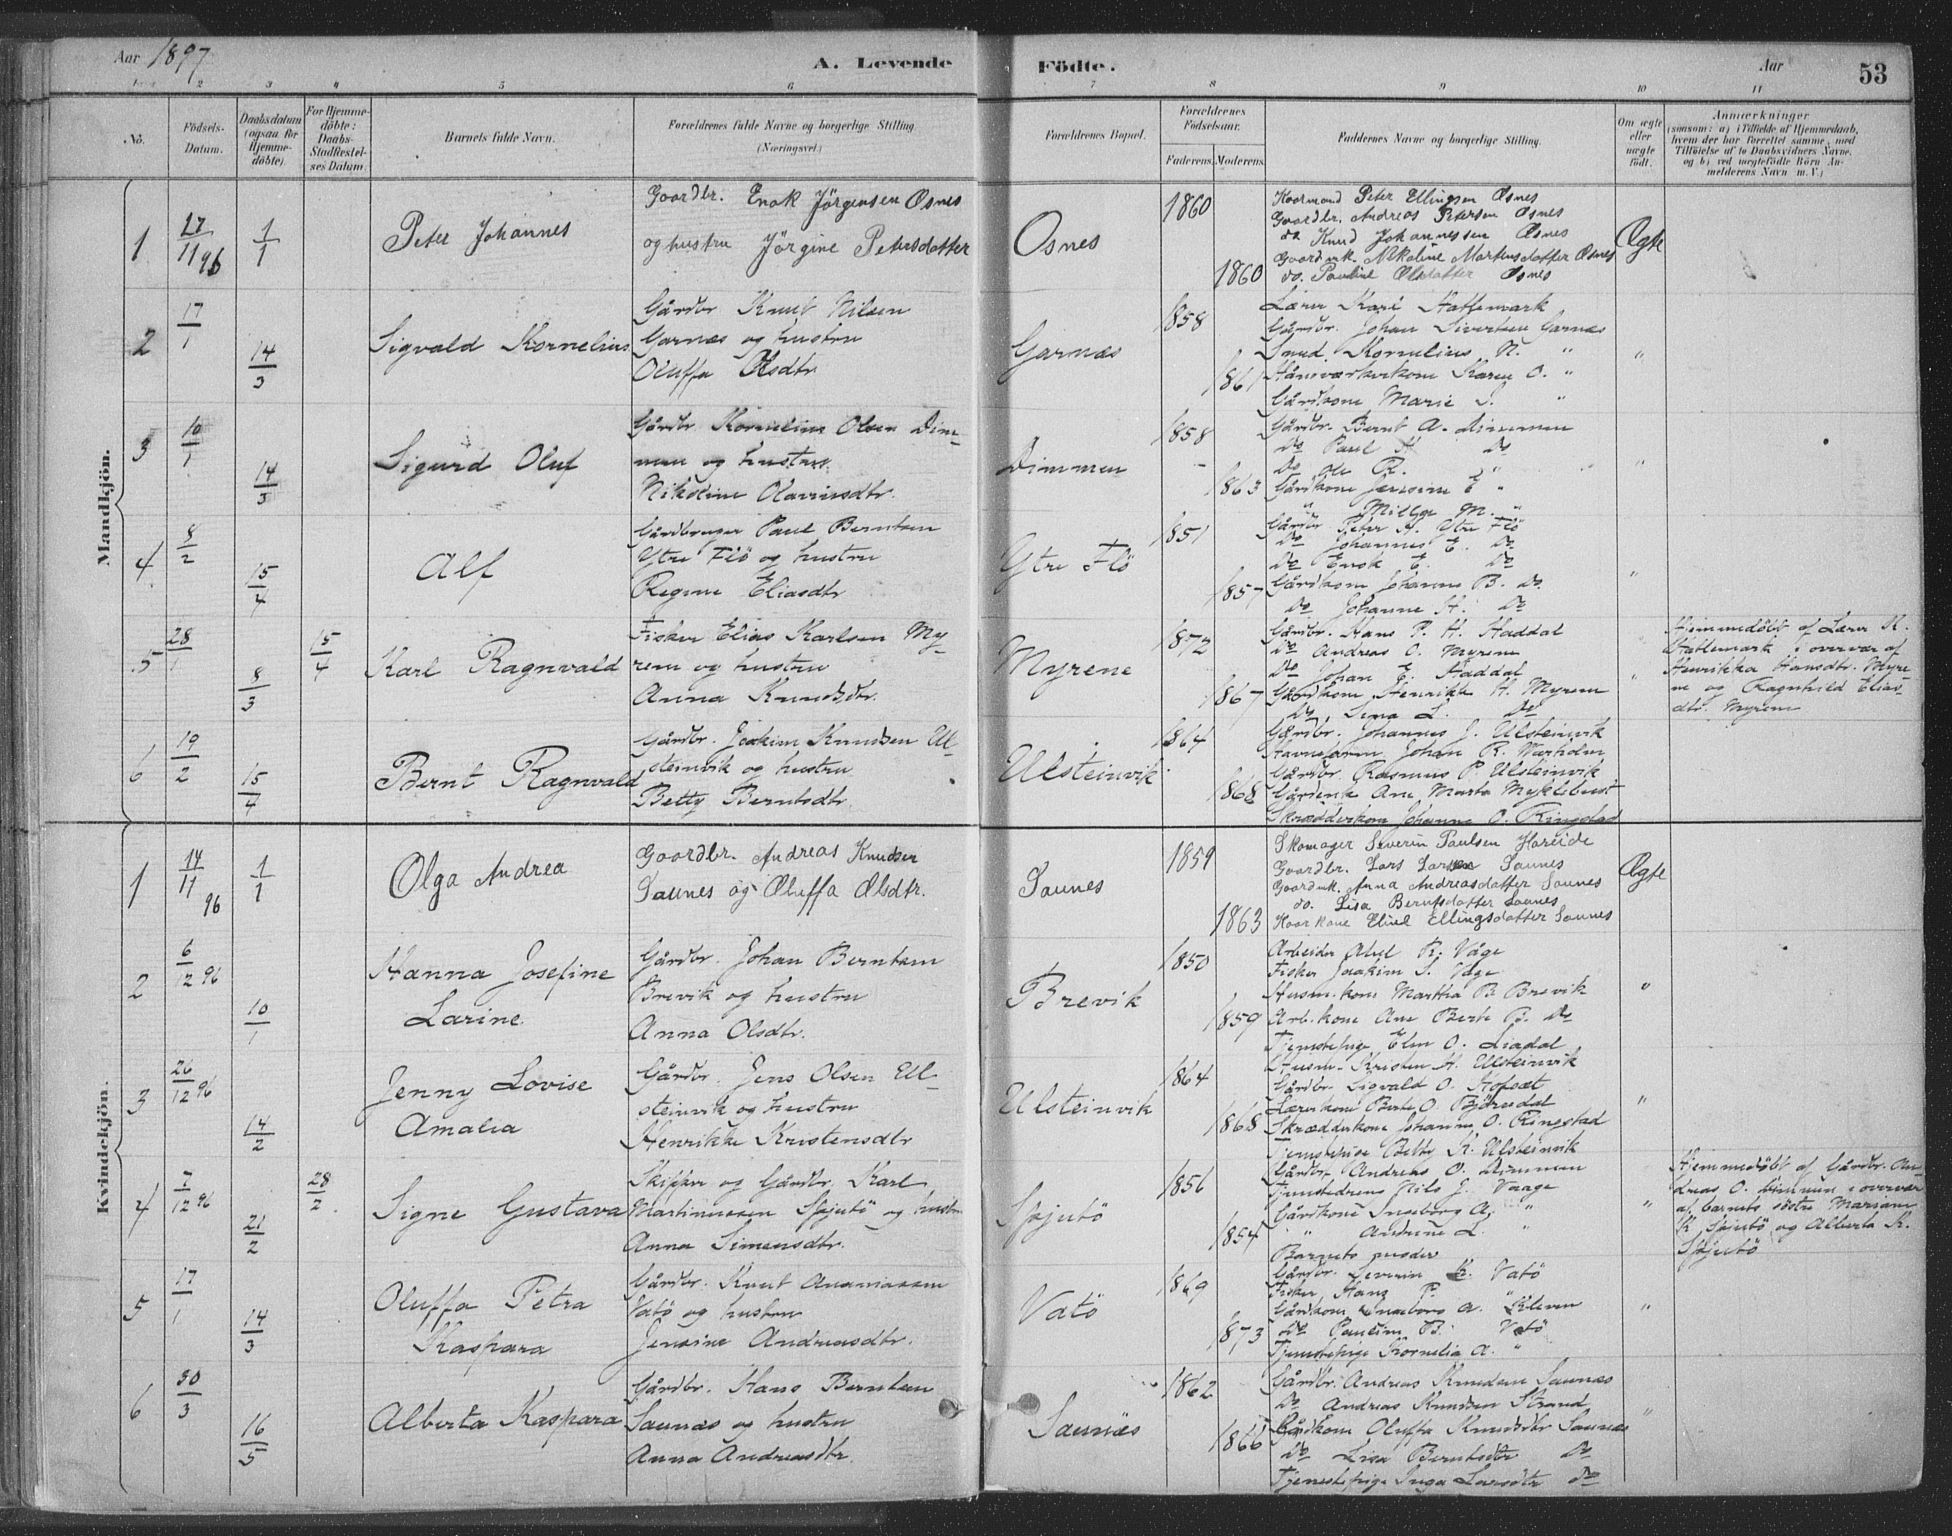 Aar 1897
A. Levende
Födte.
Aar
53
2 3 4 5 6 7 8 9 10 11
No.
Födsels-
Datum.
Daabsdatum
(ogsaa for
Hjemme-
döbte).
For Hjemme-
döbte:
Daabs-
Stadfæstel-
ses Datum.
Barnets fulde Navn.
Forældrenes fulde Navne og borgerlige Stilling
(Næringsvei.)
Forældrenes Bopæl.
Forældrenes
Födselsaar.
Faderens. Moderens.
Faddernes Navne og borgerlige Stilling.
Om ægte
eller
uægte
født.
Anmærkninger
(saasom: a) i Tilfælde af Hjemmedaab,
hvem der har forrettet samme, med
Tilföielse af to Daabsvidners Navne,
og b) ved uægtefödte Börn An-
melderens Navn m. V.)
Mandkjön.
1
17/11 96
1/1
Peter Johannes
Gaardbr. Enok Jörgensen Osnes
og hustru Jörgine Petersdatter
Osnes
1860
1860
Kaarmand Peter Ellingsen Osnes
Gaardbr. Andreas Petersen Osnes
do Knud Johannessen Osnes
Gaardmk. Nikoline Martinsdatter Osnes
do. Pauline Olsdatter Osnes
Ægte
2
17/1
14/3
Sigvald Kornelius
Gårdbr Knut Nilsen
Garnæs og hustru
Oluffa Olsdtr
Garnæs
1858
1861
Lærer Karl Hattemark
Gårdbr. Johan Sivertsen Garnæs
Smed. Kornelius N. "
Håndværkerkone Karen O. "
Gårdkone Marie S. "
"
3
10/1
14/3
Sigurd Oluf
Gårdbr Kornelius Olsen Dim-
men og hustru
Nikoline Olavinsdtr.
Dimmen
1858
1863
Gårdbr. Bernt A. Dimmen
Do Paul H Do
Do Ole R. "
Gårdkone Jensine E "
" M. "
"
4
8/2
15/4
Alf
Gårdbruger Paul Berntsen
Ytre Flö og hustru
Regine Eliasdtr
Ytre Flö
1851
1857
Gårdbr Peter H. Ytre Flö
Do Johannes E. Do
Do Enok E. Do
Gårdkone Johanne B. Do.
Do Johanne H. Do
"
5
28/1
8/3
15/4
Karl Ragnvald
Fisker Elias Karlsen My-
rene og hustru
Anna Knudsdtr.
Myrene
1872
1867
Gårdbr. Hans P. H. Haddal
Do Andreas O. Myrene
Do Johan E. Haddal
Gårdkone Henrikke H. Myrene
Do Lena L. Do
"
Hjemmedöbt af Lærer K.
Hattemark i overvær af
Henrikka Hansdtr. Myre-
ne og Ragnhild Elias-
dtr. Myrene
6
19/2
15/4
Bernt Ragnvald
Gårdbr. Joakim Knudsen Ul-
steinvik og hustru
Betty Berntsdtr.
Ulsteinvik
1864
1868
Gårdbr. Johannes J. Ulsteinvik
Johan R. Varholm
Gårdbr. Rasmus P. Ulsteinvik
Gårdenk Ane Marta Myklebust
Skrædderkone Johanne O. Ringstad
Kvindekjön.
1
14/11 96
1/1
Olga Andrea
Gaardbr. Andreas Knudsen
Saunes og Oluffa Olsdtr.
Saunes
1859
1863
Skomager Severin Paulsen Hareide
Gaardbr. Lars Larsen Saunes
Gaardmk. Anna Andreasdatter Saunes
do. Lisa Berntsdatter Saunes
Kaarkone Eline Ellingsdatter Saunes
Ægte
2
6/12 96
10/1
Hanna Josefine
Larine
Gårdbr. Johan Berntsen
Brevik og hustru
Anna Olsdtr.
Brevik
1850
1859
Arbeider Abel R. Våge
Fisker Joakim S. Våge
Husm.kone Martha B. Brevik
Arb.kone Ane Berte P. Do
Tjenestepige Elen O. Liadal
"
3
26/12 96
14/2
Jenny Lovise
Amalia
Gårdbr. Jens Olsen Ul-
steinvik og hustru
Henrikke Kristensdtr
Ulsteinvik
1864
1868
Husm. Kristen H. Ulsteinvik
Gårdbr. Sigvald O. Hofsæt
Lærerkone Berte O. Björndal
Skrædderkone Johanne O. Ringstad
Tjenestepige Betty K. Ulsteinvik
"
4
7/12 96
21/2
28/2
Signe Gustava
Skipper og Gårdbr. Karl
Martinussen Spjutö og hustru
Anna Simensdtr.
Spjutö
1856
1854
Gårdbr. Andreas O. Dimmen
Tjenestedreng Nils J. Vaage
Gårdkone Ingeborg A. "
" L. "
Barnets moder
"
Hjemmedöbt af Gårdbr. An-
dreas O. Dimmen i overvær
af barnets söstre Mariane
K. Spjutö og Alberta K.
Spjutö
5
17/1
14/3
Oluffa Petra
Kaspara
Gårdbr. Knut Ananiassen
Vatö og hustru
Jensine Andreasdtr.
Vatö
1869
1873
Gårdbr. Severin K. Vatö
Fisker Hans P. "
Gårdkone Ingeborg A. Kleven
Do Pauline B. Vatö
Tjenestepige Kornelia A. "
"
6
30/3
16/5
Alberta Kaspara
Gårdbr. Hans Berntsen
Saunæs og hustru
Anna Andreasdtr.
Saunæs
1862
1866
Gårdbr. Andreas Knudsen Saunæs
Do Andreas Knudsen Strand
Gårdkone Oluffa Knudsdtr Saunæs
Do Lisa Berntsdtr Do
Tjenestepige Inga Larsdtr do
"